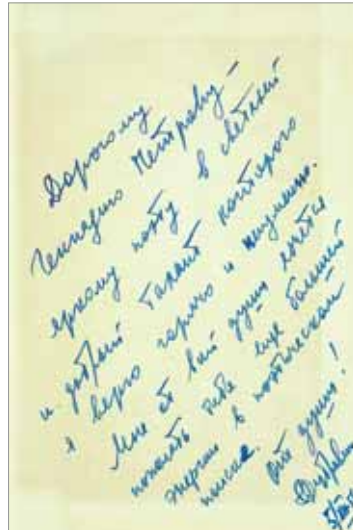 Дорогому
Геннадию Петрову —
яркому поэту в светлый
и добрый талант которого
я верю горячо и неуменно.
Мне от всей души хочется
пожелать тебе еще большей
энергии в поэтическом
поиске. От души!